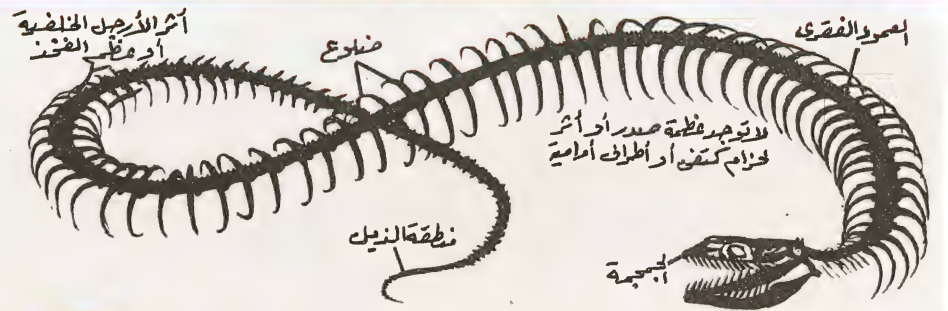 العمود الفقرى
ضلوع
أثر الأرجل الخلفية
أو عظم الفخذ
لا توجد عظمة صدر أو أثر
لحزام كتفى أو أطراف أمامية
منطقة الذيل
الجمجمة